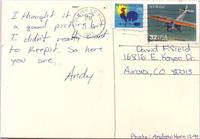 I thought it
a good picture but
I didn't really want
to keep it. So here
you are.
Andy
32 USA
David
16816 E. Kenyon Dr.
Aurora, CO 80013
Photo: Andrew Horn